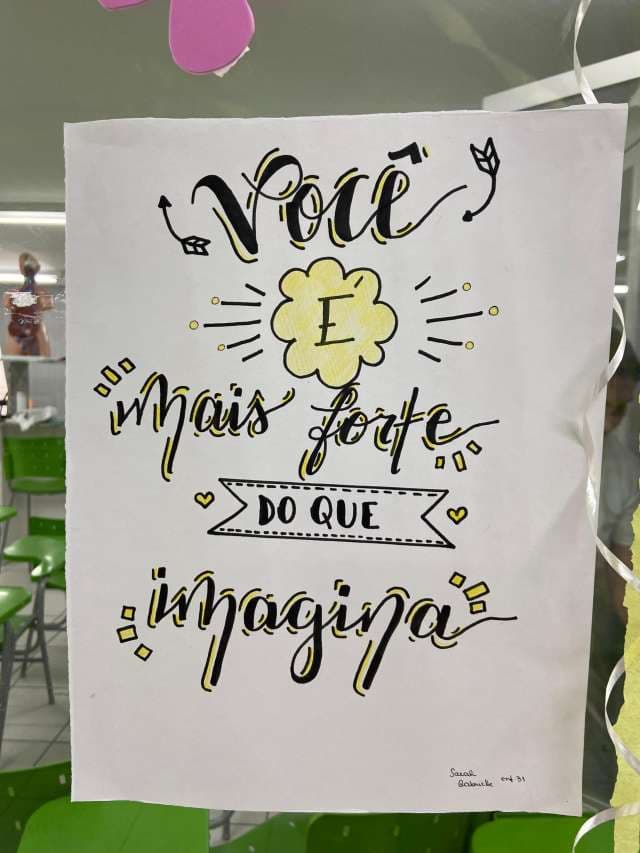 Você
É
mais forte
DO QUE
imagina
Sarah
Gabrielle enf. 31